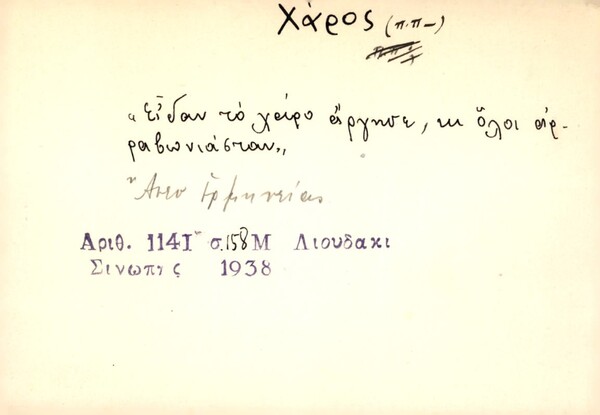 Χάρος (π.π-)
"Εἶδαν τὸ χάρο ἄργησε, κι ὅλοι ἀρ-
ραβωνιάσταν"
Ἄνευ Ἑρμηνείας
Αριθ. 1141 σ.158 Μ Λιουδακι
Σινωπης 1938